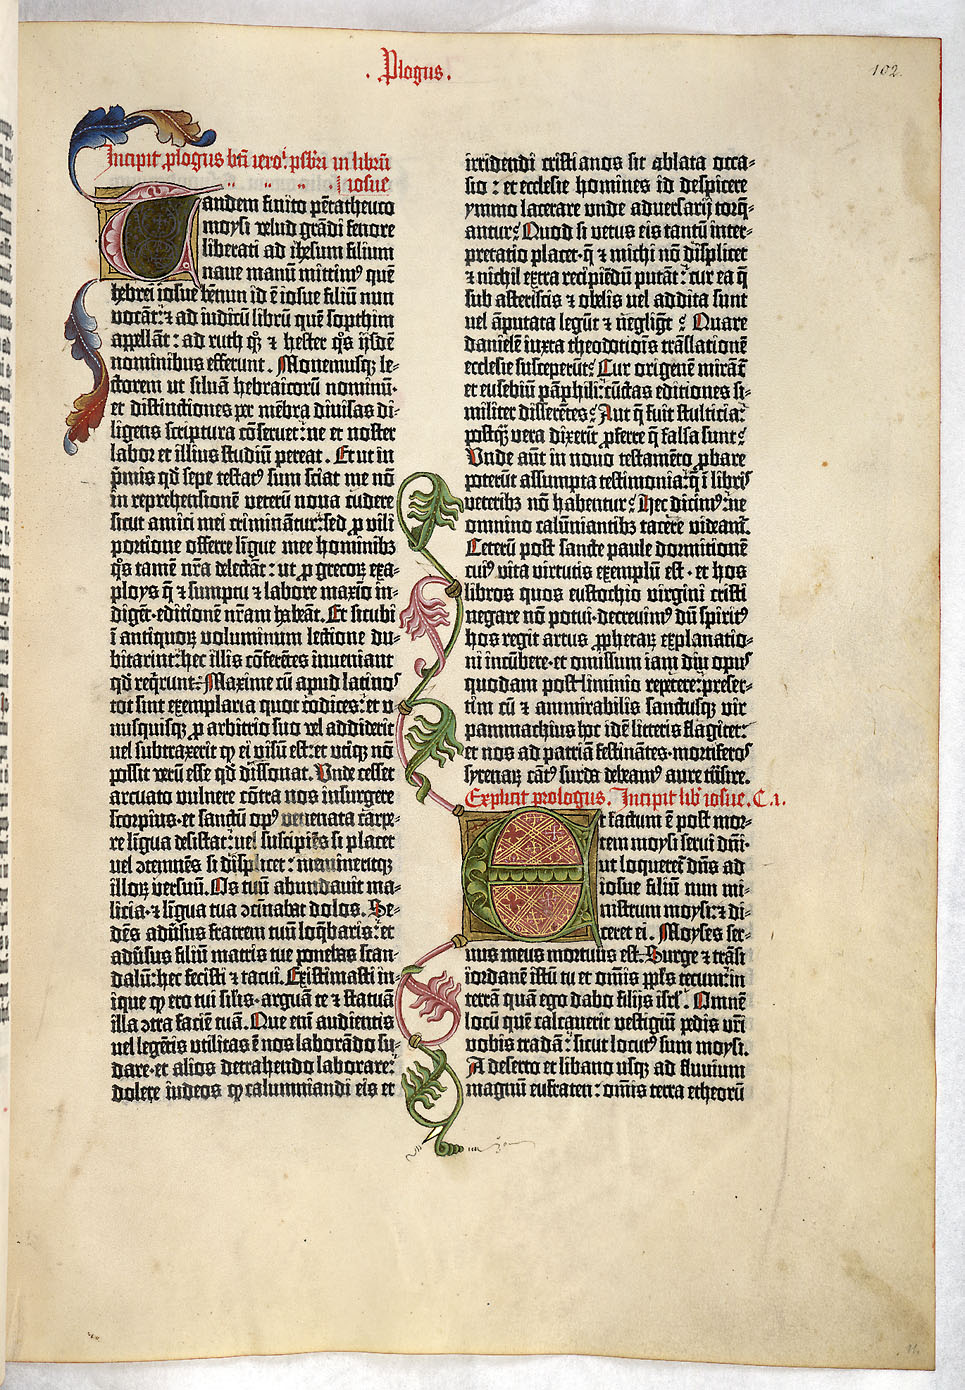 . Plogus .
102.
Incipit plogus bti iero¹. psbri in librū
iosue
Tandem finito pētatheuco
moysi velud grādi fenore
liberati ad ihesum filium
naue manū mittimꝰ quē
hebrei iosue bennun id ē iosue filiū nun
vocāt: ⁊ ad iudicū librū quē sopthim
appellāt : ad ruth qꝫ ⁊ hester qͦs ijsdē
nominibus efferunt . Monemusqꝫ le-
ctorem ut siluā hebraicorū nominū·
et distinctiones per mēbra diuisas di-
ligens scriptura cōseruet: ne et noster
labor et illius studiū pereat . Et ut in
p̄mis qđ sepe testatꝰ sum sciat me nō
in reprehensionē veterū noua cudere
sicut amici mei criminātur: sed ꝓ vili
portione offerre līgue mee hominibꝫ
qͦs tamē nr̄a delectāt : ut ꝓ grecoꝝ exa-
ploys q̄ ⁊ sumptu ⁊ labore maxīo in-
digēt· editionē nr̄am habeāt. Et sicubi
ī antiquoꝝ voluminum lectione du-
bitarint: hec illis cōferētes inueniant
qđ reqͥrunt: Maxime cū apud latinos
tot sint exemplaria quot codices: et v-
nusquisqꝫ ꝓ arbitrio suo vel addiderit
vel subtraxerit qđ ei visū est: et vtiqꝫ nō
possit verū esse qđ dissonat. Vnde cesset
arcuato vulnere cōtra nos insurgere
scorpius· et sanctū opꝰ venenata carpe-
re līgua desistat: vel suscipiēs si placet
vel ꝯtemnēs si displicet : memineritqꝫ
illoꝝ versuū. Os tuū abundauit ma-
licia· ⁊ līgua tua ꝯcinnabat dolos. Se-
dēs aduersus fratrem tuū loqͣbaris: et
adūsus filiū matris tue ponebas scan-
dalū: hec fecisti ⁊ tacui. Existimasti in-
ique qđ ero tui silis· arguā te ⁊ statuā
illa ꝯtra faciē tuā. Que enī audientis
vel legētis utilitas ē nos laborādo su-
dare· et alios detrahendo laborare:
dolere iudeos qđ calumniandi eis et
irridendi cristianos sit ablata occa-
sio : et ecclesie homines id despicere
ymmo lacerare vnde aduersarij torq̄-
antur: Quod si vetus eis tantū inter-
pretatio placet· q̄ ⁊ michi nō displicet
⁊ nichil extra recipiēdū putāt: cur ea q̄
sub asteriscis ⁊ obelis vel addita sunt
vel āputata legūt ⁊ negligūt : Quare
danielē iuxta theodotiōis trāslationē
ecclesie susceperūt: Cur origenē mirāt̄
et eusebiū pāphili: cūctas editiones si-
militer disserētes: Aut q̄ fuit stulticia:
postqꝫ vera dixerīt ꝓferre q̄ falsa sunt:
Vnde aūt in nouo testamēto ꝓbare
poterūt assumpta testimonia: q̄ ī libris
veteribꝫ nō habentur: Hec dicimꝰ: ne
omnino calūniantibꝫ tacere videamr̄.
Ceterū post sancte paule dormitionē
cuiꝰ vita virtutis exemplū est · et hos
libros quos eustochio virgini cristi
negare nō potui· decreuimꝰ dū spiritꝰ
hos regit artus ꝓphetaꝝ explanatio-
ni incūbere· et omissum iam diu opus
quodam postliminio repetere: preser-
tim cū ⁊ ammirabilis sanctusqꝫ vir
pammachius hoc idē litteris flagitet:
et nos ad patriā festinātes· mortiferos
syrenaꝝ cātꝰ surda debeamꝰ aure trāsire.
Explicit prologus. Incipit lib iosue. C. i.
Et factum ē post mor-
tem moysi serui dn̄i·
ut loqueret̄ dn̄s ad
iosue filiū nun mi-
nistrum moysi: ⁊ di-
ceret ei . Moyses ser-
uus meus mortuus est. Surge ⁊ trāsi
iordanē istū tu et omīs ppl̄s tecum: in
terrā quā ego dabo filijs isrl̄ . Omnē
locū quē calcauerit vestigiū pedis vr̄i
vobis tradā : sicut locutꝰ sum moysi.
A deserto et libano usqꝫ ad fluuium
magnū eufraten : om̄is terra etheorū